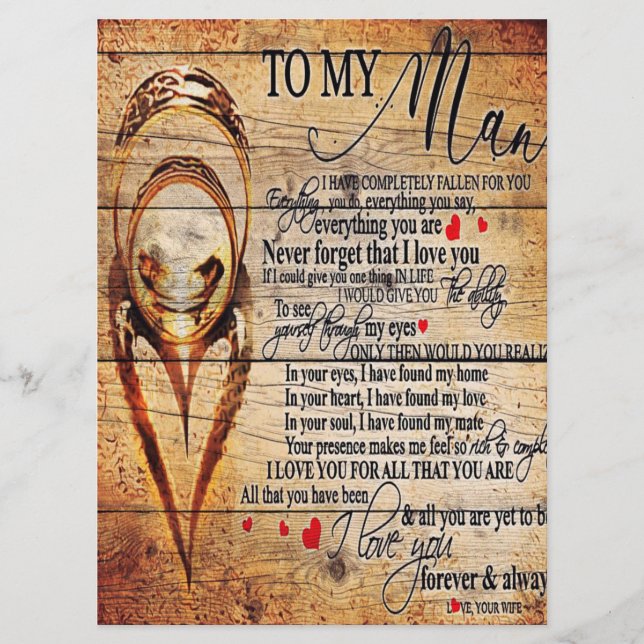 TO MY Man
I HAVE COMPLETELY FALLEN FOR YOU
Everything, you do, everything you say,
everything you are
Never forget that I love you
If I could give you one thing IN LIFE
I WOULD GIVE YOU The ability
To see
yourself through my eyes
ONLY THEN WOULD YOU REALI
In your eyes, I have found my home
In your heart, I have found my love
In your soul, I have found my mate
Your presence makes me feel so rich & comple
I LOVE YOU FOR ALL THAT YOU ARE
All that you have been
& all you are yet to be
I love you
forever & alway
LOVE, YOUR WIFE ~